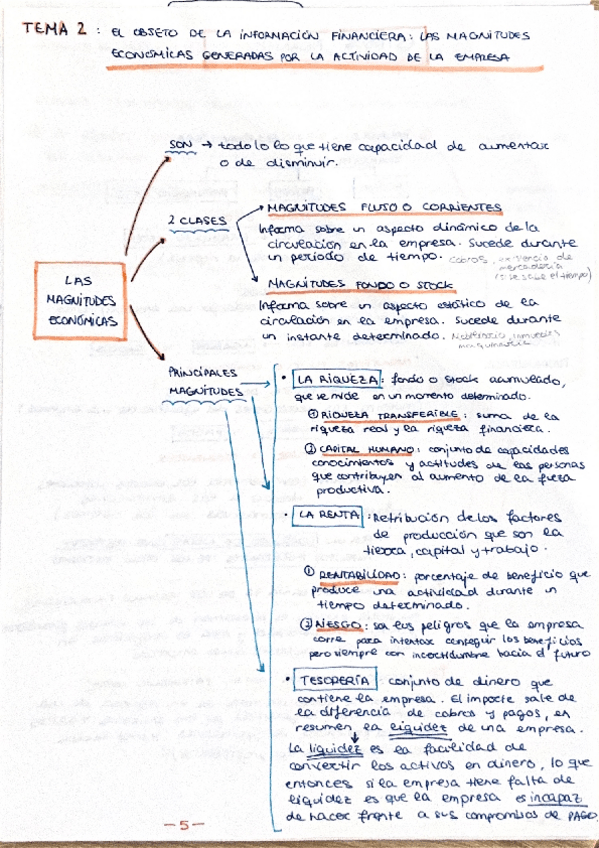 TEMA 2: EL OBJETO DE LA INFORMACIÓN FINANCIERA: LAS MAGNITUDES
ECONÓMICAS GENERADAS POR LA ACTIVIDAD DE LA EMPRESA
SON → todo lo lo que tiene capacidad de aumentar
o de disminuir.
2 CLASES
MAGNITUDES FLUJO O CORRIENTES
Informa sobre un aspecto dinámico de la
circulación en la empresa. Sucede durante
un periodo de tiempo. Cobros, existencia de
mercadería
(si se sabe el tiempo)
MAGNITUDES FONDO O STOCK
Informa sobre un aspecto estático de la
circulación en la empresa. Sucede durante
un instante determinado. Mobiliario, inmuebles
maquinaria
LAS
MAGNITUDES
ECONÓMICAS
PRINCIPALES
MAGNITUDES
• LA RIQUEZA: fondo o stock acumulado,
que se mide en un momento determinado.
① RIQUEZA TRANSFERIBLE: suma de la
riqueza real y la riqueza financiera.
② CAPITAL HUMANO: conjunto de capacidades
conocimientos y actitudes de las personas
que contribuyen al aumento de la fuerza
productiva.
• LA RENTA: Retribución de los factores
de producción que son la
tierra, capital y trabajo.
① RENTABILIDAD: porcentaje de beneficio que
produce una actividad durante un
tiempo determinado.
② RIESGO: son los peligros que la empresa
corre para intentar conseguir los beneficios
pero siempre con incertidumbre hacia el futuro
• TESORERÍA: conjunto de dinero que
contiene la empresa. El importe sale de
la diferencia de cobros y pagos, en
resumen la liquidez de una empresa.
La liquidez es la facilidad de
convertir los activos en dinero, lo que
entonces si la empresa tiene falta de
liquidez es que la empresa es incapaz
de hacer frente a sus compromisos de PAGO.
-5-